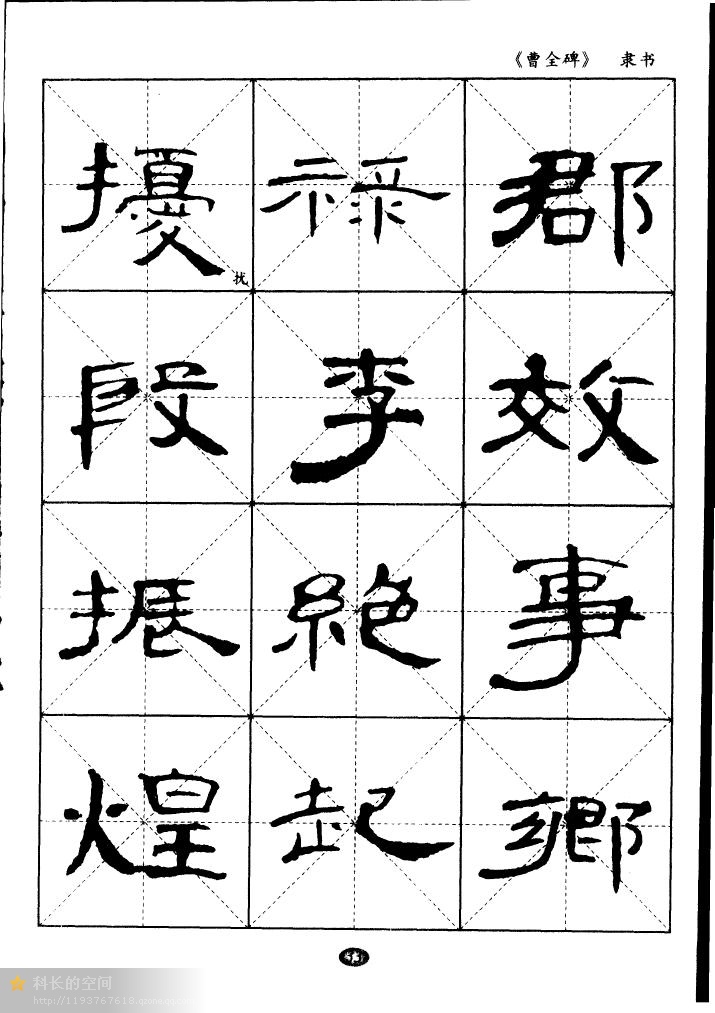 《曹全碑》 隶书
郡 效 事 鄉
禄 李 絕 起
擾 段 振 煌
扰
科长的空间